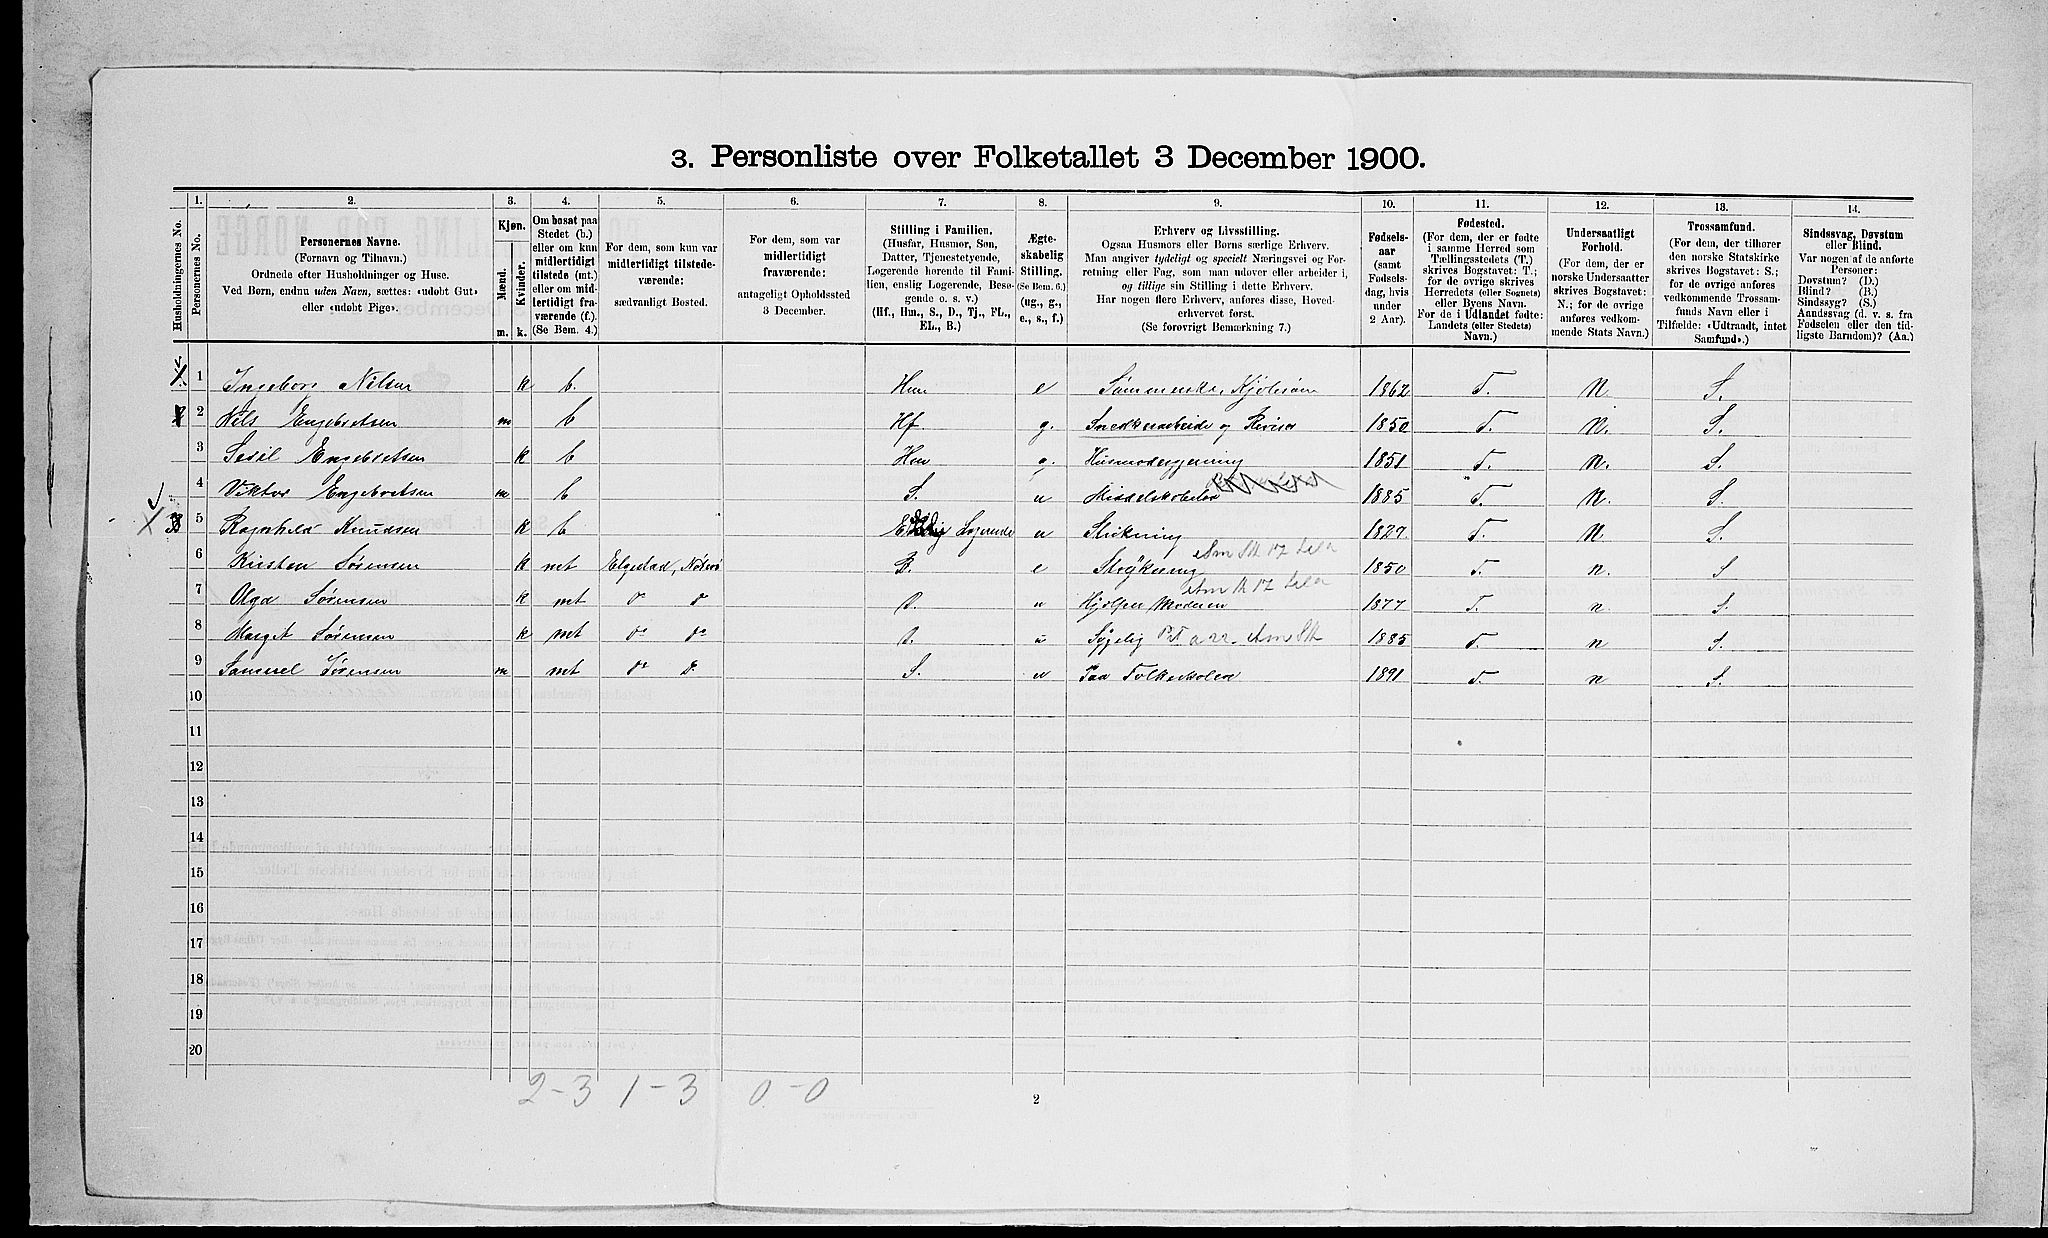 3. Personliste over Folketallet 3 December 1900.
Husholdningernes No.
1.
Personernes No.
2.
Personernes Navne.
(Fornavn og Tilnavn.)
Ordnede efter Husholdninger og Huse.
Ved Børn, endnu uden Navn, sættes: «udøbt Gut»
eller «udøbt Pige».
3.
Kjøn.
Mænd.
Kvinder.
m.
k.
4.
Om bosat paa
Stedet (b.)
eller om kun
midlertidigt
tilstede (mt.)
eller om mid-
lertidigt fra-
værende (f.).
(Se Bem. 4.)
5.
For dem, som kun var
midlertidigt tilstede-
værende:
sædvanligt Bosted.
6.
For dem, som var
midlertidigt
fraværende:
antageligt Opholdssted
3 December.
7.
Stilling i Familien.
(Husfar, Husmor, Søn,
Datter, Tjenestetyende,
Logerende hørende til Fami-
lien, enslig Logerende, Besø-
gende o. s. v.)
(Hf., Hm., S., D., Tj., FL.,
EL., B.)
8.
Ægte-
skabelig
Stilling.
(Se Bem. 6.)
(ug., g.,
e., s., f.)
9.
Erhverv og Livsstilling.
Ogsaa Husmors eller Børns særlige Erhverv.
Man angiver tydeligt og specielt Næringsvei og For-
retning eller Fag, som man udover eller arbeider i,
og tillige sin Stilling i dette Erhverv.
Har nogen flere Erhverv, anføres disse, Hoved-
erhvervet først.
(Se forøvrigt Bemærkning 7.)
10.
Fødsels-
aar
(samt
Fødsels-
dag, hvis
under
2 Aar).
11.
Fødested.
(For dem, der er fødte
i samme Herred som
Tællingsstedets (T.)
skrives Bogstavet: T.;
for de øvrige skrives
Herredets (eller Sognets)
eller Byens Navn.
For de i Udlandet fødte:
Landets (eller Stedets)
Navn.)
12.
Undersaatligt
Forhold.
(For dem, der er
norske Undersaatter
skrives Bogstavet:
N.; for de øvrige
anføres vedkom-
mende Stats Navn.)
13.
Trossamfund.
(For dem, der tilhører
den norske Statskirke
skrives Bogstavet: S.;
for de øvrige anføres
vedkommende Trossam-
funds Navn eller i
Tilfælde: «Udtraadt, intet
Samfund».)
14.
Sindssvag, Døvstum
eller Blind.
Var nogen af de anførte
Personer:
Døvstum? (D.)
Blind? (B.)
Sindssyg? (S.)
Aandssvag (d. v. s. fra
Fødselen eller den tid-
ligste Barndom)? (Aa.)
1 Ingeborg Nilsen k b. Hm e Sømmerske, Kjolesøm 1862 T. N. S.
2 Nils Engebretsen m b Hf g. Snedkerarbeide og Revisor 1850 T. N. S.
3 Sesil Engebretsen k b Hm g. Husmodergjerning 1851 T. N. S.
4 Viktor Engebretsen m b S. u Middelskolelev 1885 T. N. S.
5 Ragnhild Knudsen k b Logerende u Strikning 1827 T. N. S.
6 Kirsten Sørensen k mt Elgestad, Nøterø B. e Strykning 1850 T. n. S
7 Olga Sørensen k mt do do D. u Hjælper Moderen 1877 T. n S.
8 Margit Sørensen k mt do do D. u Sygelig 1885 T. n S.
9 Samuel Sørensen m mt do D. S. u Paa Folkeskolen 1891 T. n S.
10
11
12
13
14
15
16
17
18
19
20
2-3 1-3 0-0
2